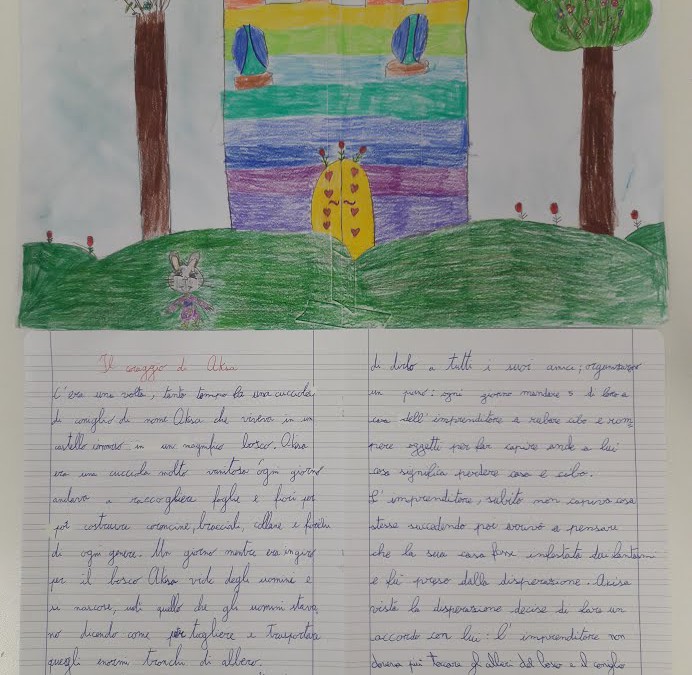 Il coraggio di Akisa
C'era una volta, tanto tempo fa una cucciola
di coniglio di nome Akisa che viveva in un
castello immerso in un magnifico bosco. Akisa
era una cucciola molto vanitosa ogni giorno
andava a raccogliere foglie e fiori per
poi costruire coroncine, bracciali, collane e
di ogni genere. Un giorno mentre era in giro
per il bosco Akisa vide degli uomini e
si nascose, udì quello che gli uomini stava
no dicendo come togliere e trasportare
quegli enormi tronchi di albero.
di dirlo a tutti i suoi amici; organizzarono
un piano: ogni giorno mandare 5 di loro a
casa dell'imprenditore a rubare cibo e rom
pere oggetti per far capire anche a lui
cosa significa perdere casa e cibo.
L'imprenditore, subito non capiva cosa
stesse succedendo poi arrivò a pensare
che la sua casa fosse infestata dai fantasmi
e fu preso dalla disperazione. Akisa
vista la disperazione decise di fare un
accordo con lui: l'imprenditore non
doveva più toccare gli alberi del bosco e il coniglio